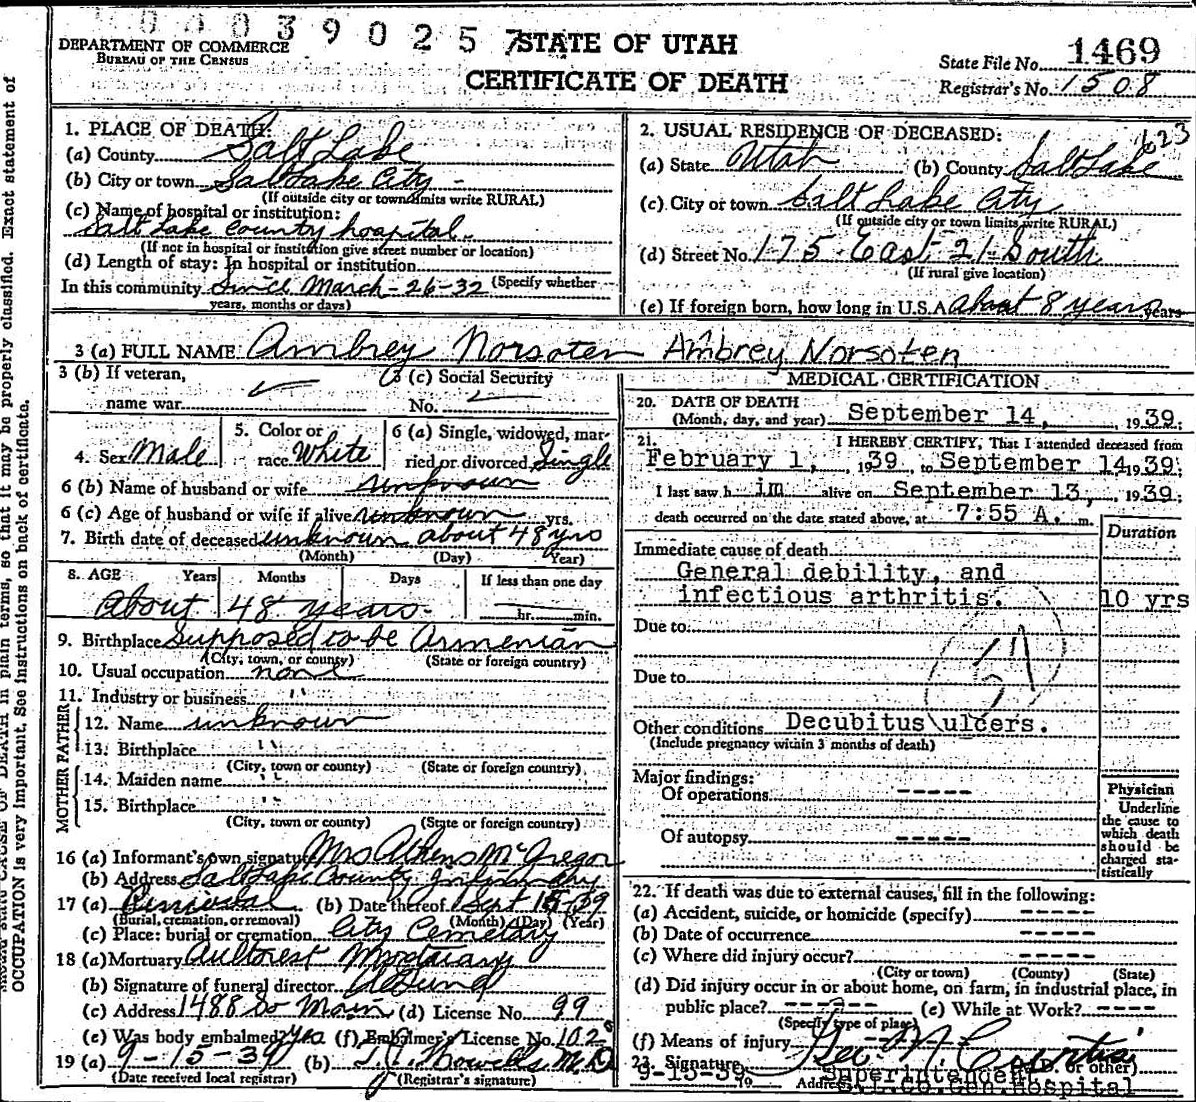 0 0 0 3 9 0 2 5 7
DEPARTMENT OF COMMERCE
BUREAU OF THE CENSUS
STATE OF UTAH
CERTIFICATE OF DEATH
State File No. 1469
Registrar's No. 1508
1. PLACE OF DEATH:
(a) County Salt Lake
(b) City or town Salt Lake City -
(If outside city or town limits write RURAL)
(c) Name of hospital or institution:
Salt Lake County hospital.
(If not in hospital or institution give street number or location)
(d) Length of stay: In hospital or institution
In this community Since March-26-32 (Specify whether
years, months or days)
2. USUAL RESIDENCE OF DECEASED: 623
(a) State Utah (b) County Salt Lake
(c) City or town Salt Lake City
(If outside city or town limits write RURAL)
(d) Street No. 175 East 21 South
(If rural give location)
(e) If foreign born, how long in U.S.A. about 8 years years
3 (a) FULL NAME Ambrey Norsoten Ambrey Norsoten
3 (b) If veteran,
name war
3 (c) Social Security
No.
4. Sex Male
5. Color or
race White
6 (a) Single, widowed, mar-
ried or divorced Single
6 (b) Name of husband or wife unknown
6 (c) Age of husband or wife if alive unknown yrs.
7. Birth date of deceased unknown about 48 yrs
(Month) (Day) (Year)
8. AGE Years Months Days If less than one day
About 48 years. hr. min.
9. Birthplace Supposed to be Armenian
(City, town, or county) (State or foreign country)
10. Usual occupation none
11. Industry or business "
FATHER
12. Name unknown
13. Birthplace "
(City, town or county) (State or foreign country)
MOTHER
14. Maiden name "
15. Birthplace "
(City, town or county) (State or foreign country)
16 (a) Informant's own signature Mrs Athens McGregor
(b) Address Salt Lake County Infirmary
17 (a) Removal (b) Date thereof Sept 15-39
(Burial, cremation, or removal) (Month) (Day) (Year)
(c) Place: burial or cremation City Cemetary
18 (a) Mortuary Aultorest Mortuary
(b) Signature of funeral director
(c) Address 1488 So Main (d) License No. 99
(e) Was body embalmed? yes (f) Embalmer's License No. 102
19 (a) 9-15-39 (b) M.D.
(Date received local registrar) (Registrar's signature)
MEDICAL CERTIFICATION
20. DATE OF DEATH
(Month, day, and year) September 14, 1939;
21. I HEREBY CERTIFY, That I attended deceased from
February 1, 1939, to September 14 1939;
I last saw him alive on September 13, 1939;
death occurred on the date stated above, at 7:55 A. m.
Duration
Immediate cause of death
General debility, and
infectious arthritis. 10 yrs
Due to
Due to
Other conditions Decubitus ulcers.
(Include pregnancy within 3 months of death)
Major findings:
Of operations -----
Of autopsy -----
Physician
Underline
the cause to
which death
should be
charged sta-
tistically
22. If death was due to external causes, fill in the following:
(a) Accident, suicide, or homicide (specify) -----
(b) Date of occurrence -----
(c) Where did injury occur? -----
(City or town) (County) (State)
(d) Did injury occur in or about home, on farm, in industrial place, in
public place? ----- (e) While at Work? -----
(Specify type of place)
(f) Means of injury
23. Signature Geo. N. (M.D. or other)
9-15-39 19 Address Superintendent
S.L.Co.Gen.Hospital
CAUSE OF DEATH in plain terms, so that it may be properly classified. Exact statement of
OCCUPATION is very important. See instructions on back of certificate.